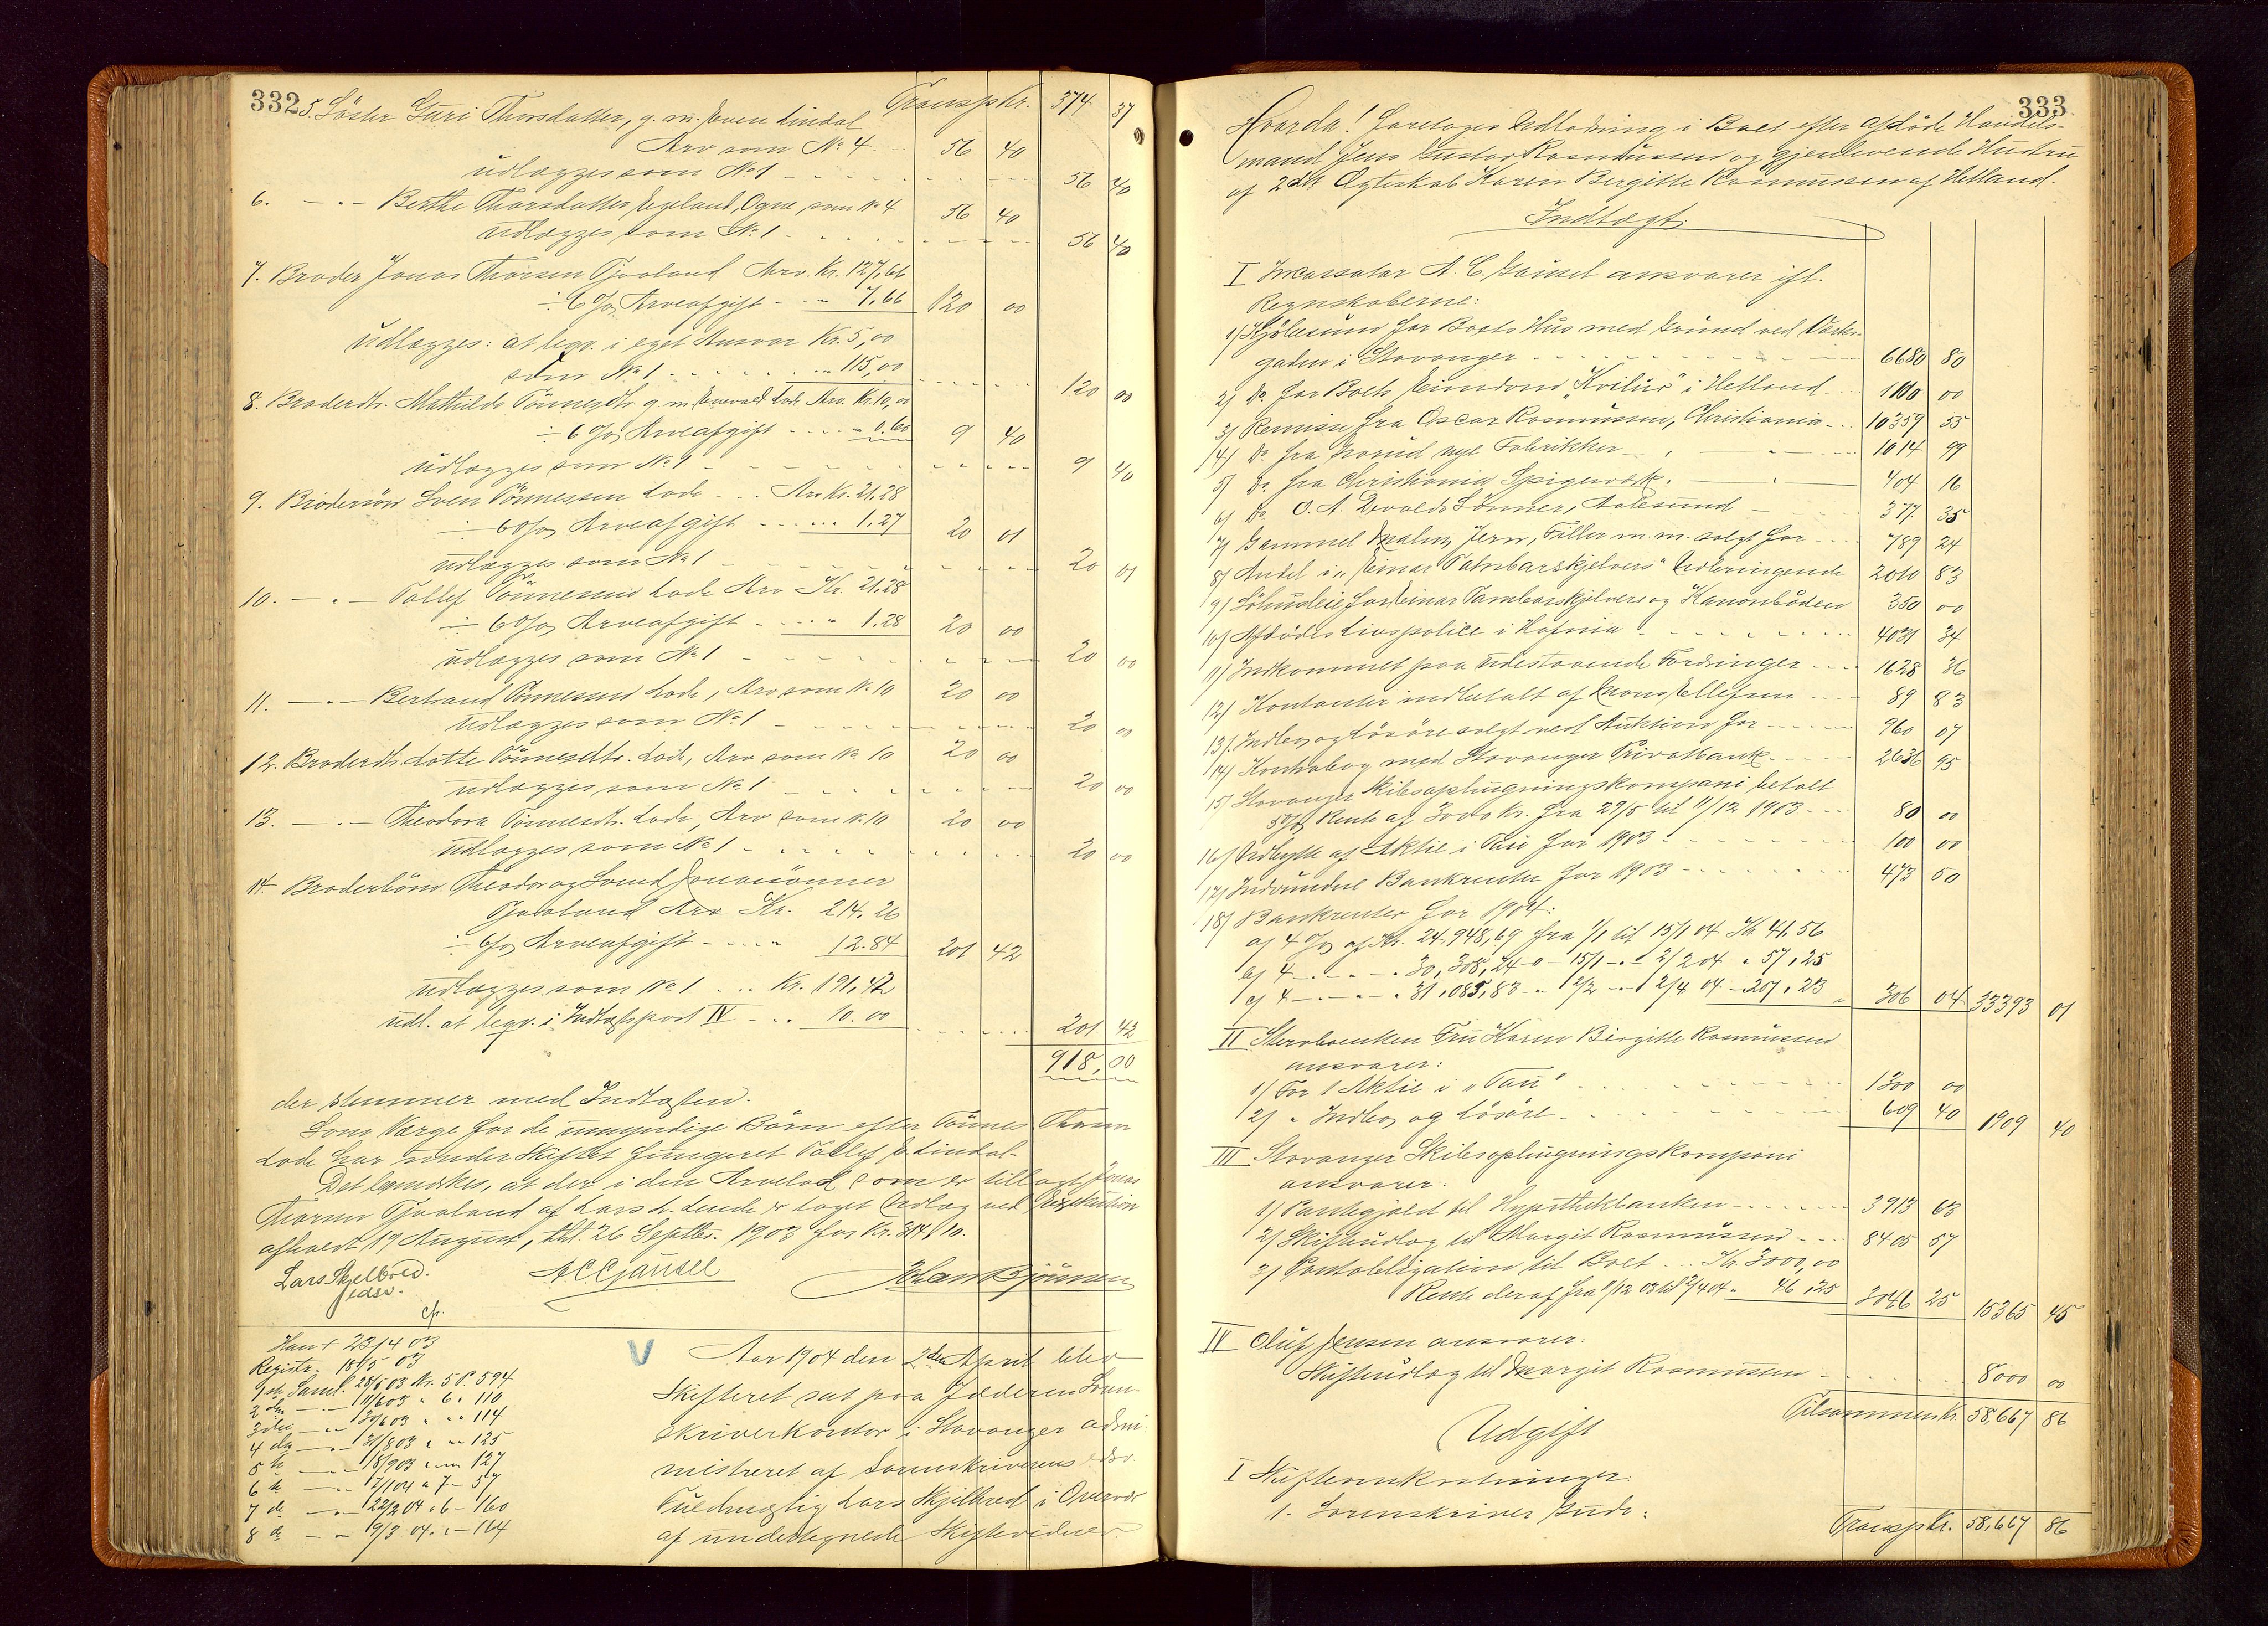 332
5. Söster Guri Thorsdatter, g. m. Sven Lindal Transp. Kr. 374 37
Arv som No 4 56 40
udlægges som No 1 56 40
6. — " — Berthe Thorsdatter Egeland, Ogna, som No 4 56 40
udlægges som No 1 56 40
7. Broder Jonas Thorsen Tjaaland Arv. Kr. 127,66
÷ 6 % Arveafgift 7,66 120 00
udlægges: at beqv. i eget Ansvar Kr. 5,00
som No 1 115,00 120 00
8. Broderdtr. Mathilde Tönnesdtr. g. m. Enevald Lode Arv. Kr. 10,00
÷ 6 % Arveafgift 0.60 9 40
udlægges som No 1 9 40
9. Brodersön Sven Tönnessen Lode Arv Kr. 21,28
÷ 6 % Arveafgift 1,27 20 01
udlægges som No 1 20 01
10. — " — Tollef Tönnessen Lode Arv Kr. 21,28
÷ 6 % Arveafgift 1.28 20 00
udlægges som No 1 20 00
11. — " — Bertrand Tönnessen Lode, Arv som No 10 20 00
udlægges som No 1 20 00
12. Broderdtr. Lotte Tönnesdtr. Lode, Arv som No 10 20 00
udlægges som No 1 20 00
13. — " — Theodora Tönnesdtr. Lode, Arv som No 10 20 00
udlægges som No 1 20 00
14. Broderbörn Theodor og Svend Jonassönner
Tjaaland Arv Kr. 214,26
÷ 6 % Arveafgift 12.84 201 42
udlægges som No 1 Kr. 191,42
udl. at beqv. i Indtægtspost IV 10.00 201 42
918,00
der stemmer med Indtægten.
Som Værge for de umyndige Börn efter Tönnes Thorsen
Lode har under Skiftet fungeret Tollef E. Lindal.
Det bemærkes, at der i den Arvelod som er tillagt Jonas
Thorsen Tjaaland af Lars L. Lende er taget Udlæg ved Exekution
afholdt 19 August, thl. 26 Septbr. 1903 for Kr. 314,10.
Lars Skjelbred. A C Gjausel Johan Bjönnes
edsv.
cfr.
Han + 23/4 03
Registr. 18/5 03
1ste Saml. 28/5 03 Nr. 5 P. 594
2den — " — 11/6 03 " 6 " 110
3die — " — 30/6 03 " " " 114
4de — " — 31/8 03 " " " 125
5te — " — 18/9 03 " " " 127
6te — " — 17/1 04 " 7 – 57
7de — " — 22/2 04 " 6 – 160
8de — " — 19/3 04 " " – 164
V
Aar 1904 den 2den April blev
Skifteret sat paa Jæderens Soren-
skriverkontor i Stavanger admi-
nistreret af Sorenskriverens edsv.
Fuldmægtig Lars Skjelbred i Overvær
af undertegnede Skiftevidner
333
Hvorda! foretages Udlodning i Boet efter afdöde Handels-
mand Jens Gustav Rasmussen og gjenlevende Hustru
af 2det Ægteskab Karen Bergitte Rasmussen af Hetland.
Indtægt:
I Incassator A. C. Gausel ansvarer ifl.
Regnskaberne:
1) Kjöbesum for Boets Hus med Grund ved Værks-
gaden i Stavanger 6680 80
2) Do for Boets Eiendom "Kvilur" i Hetland 1100 00
3) Remisse fra Oscar Rasmussen, Christiania 10359 55
4) Do fra Lorud nye Fabrikker 1014 99
5) Do fra Christiania Spigerværk 404 16
6) Do O. A. Devolds Sönner, Aalesund 377 35
7) Gammel Malm, Jern, Filler m. m. solgt for 789 24
8) Andel i "Einar Tambarskjelvers" Udbringende 2010 83
9) Söhusleie for Einar Tambarskjelver og Kanonbaaden 350 00
10) Afdödes Livspolice i Hafnia 4031 34
11) Indkommet paa udestaaende Fordringer 1628 36
12) Kontanter indbetalt af Mons Ellefsen 89 83
13) Indbo og Lösöre solgt ved Auktion for 960 07
14) Kontrabog med Stavanger Privatbank 2636 95
15) Stavanger Skibsophugningskompani betalt
5 % Rente af 3000 Kr. fra 29/5 til 11/12 1903 80 00
16) Udbytte af Aktie i Tau for 1903 100 00
17) Indvundne Bankrenter for 1903 473 50
18) Bankrenter for 1904:
a) 4 % af Kr. 24,948,69 fra 1/1 til 15/1 04 Kr. 41,56
b) 4 — " — " 30,308,24 – " – 15/1 – " – 2/2 04 " 57,25
c) 4 — " — " 31,085,83 – " 2/2 – " 2/4 04 – 207,23 306 04 33393 01
II Stervboenken Fru Karen Birgitte Rasmussen
ansvarer:
1) For 1 Aktie i "Tau" 1300 00
2) " Indbo og Lösöre 609 40 1909 40
III Stavanger Skibsophugningskompani
ansvarer:
1) Pantegjæld til Hypothekbanken 3913 63
2) Skifteudlæg til Margit Rasmussen 8405 57
3) Pantobligation til Boet Kr. 3000,00
Rente deraf fra 11/12 03 til 2/4 04 " 46,25 3046 25 15365 45
IV Oluf Jensen ansvarer:
Skifteudlæg til Margit Rasmussen 8000 00
Tilsammen Kr. 58,667 86
Udgift
I Skifteomkostninger:
1. Sorenskriver Gude:
Transp. Kr. 58,667 86